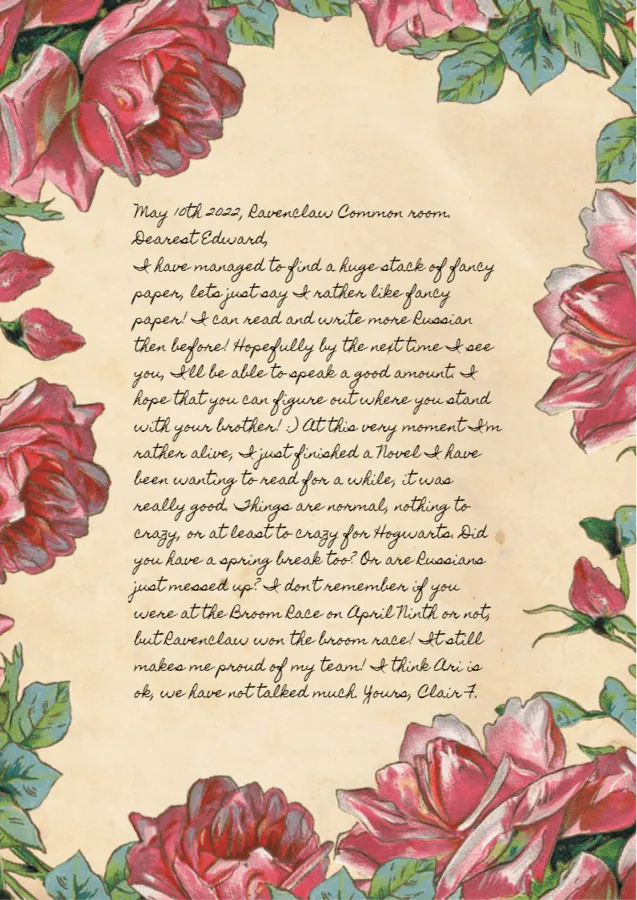 May 10th 2022, Ravenclaw Common room.
Dearest Edward,
I have managed to find a huge stack of fancy
paper, lets just say I rather like fancy
paper! I can read and write more Russian
then before! Hopefully by the next time I see
you, I'll be able to speak a good amount. I
hope that you can figure out where you stand
with your brother! :) At this very moment I'm
rather alive, I just finished a Novel I have
been wanting to read for a while, it was
really good. Things are normal, nothing to
crazy, or at least to crazy for Hogwarts. Did
you have a spring break too? Or are Russians
just messed up? I don't remember if you
were at the Broom Race on April Ninth or not,
but Ravenclaw won the broom race! It still
makes me proud of my team! I think Ari is
ok, we have not talked much. Yours, Clair F.